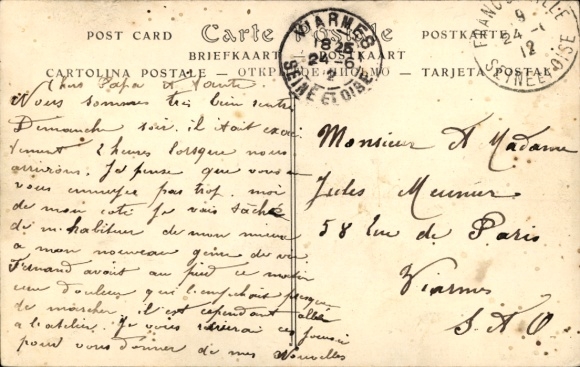 POST CARD Carte Postale POSTKARTE
BRIEFKAART POSTKAART
CARTOLINA POSTALE ОТКРЫТОЕ ПИСЬМО TARJETA POSTAL
VIARMES
18 25
24-6
12
SEINE ET OISE
FRANCONVILLE
9
24-1
12
SEINE ET OISE
Chers Papa et
Nous sommes très bien rentré
Dimanche soir. il était exac
tement 2 heures lorsque nous
arrivons. Je pense que vous
vous ennuyée pas trop. moi
de mon coté Je vais tâché
de m'habituer de mon mieux
a mon nouveau genre de vie
Fernand avait au pied ce matin
une douleur qui l'empêchait presque
de marcher il est cependant allé
a l'atelier. Je vous
pour vous donner de mes Nouvelles
Monsieur Et Madame
Jules Meunier
58 Rue de Paris
Viarmes
S. et O